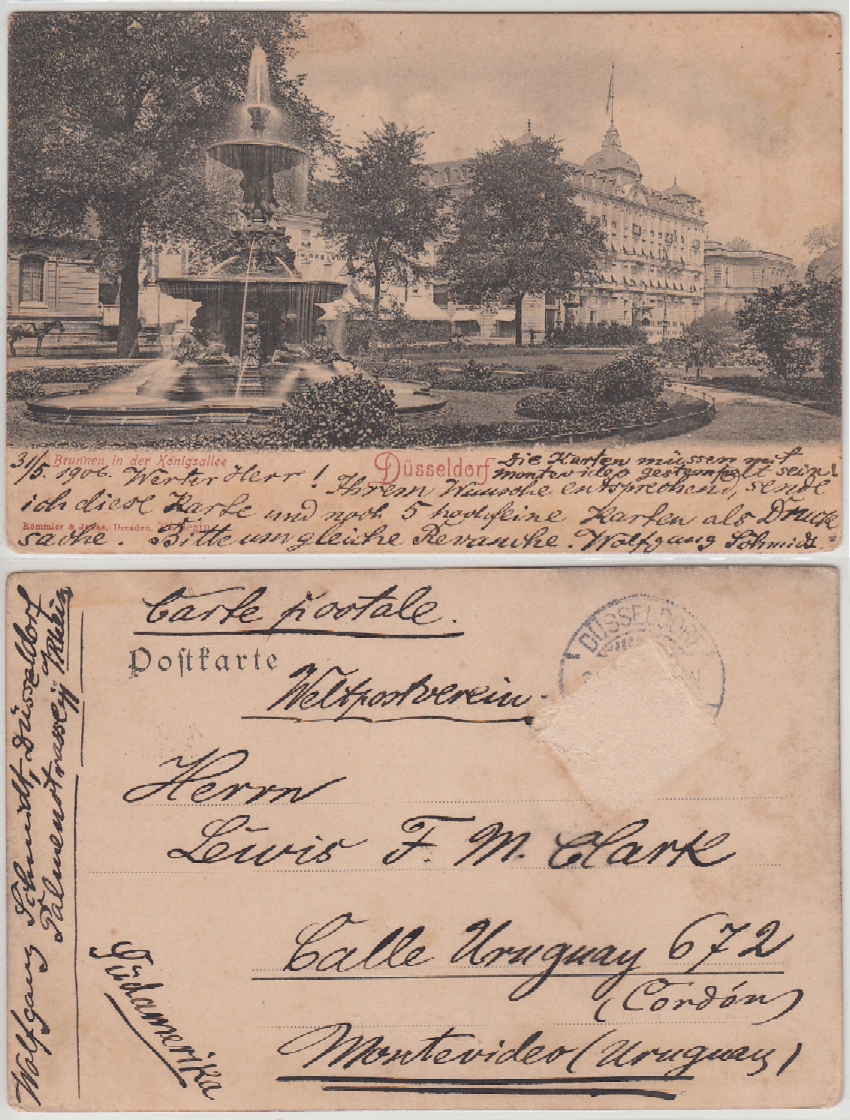 Brunnen in der Königsallee
Düsseldorf
Die Karten müssen mit
Montevideo gestempelt sein!
31/5. 1906. Werter Herr! Ihrem Wunsche entsprechend, sende
ich diese Karte und noch 5 hochfeine Karten als Druck
Rommler & Jonas, Dresden.
sache. Bitte um gleiche Revanche. Wolfgang Schmidt.
Carte postale.
Postkarte
DÜSSELDORF
Weltpostverein
Herrn
Lewis F. M. Clark
Calle Uruguay 672
(Cordón)
Montevideo (Uruguay)
Südamerika
Wolfgang Schmidt, Düsseldorf
Palmenstrasse